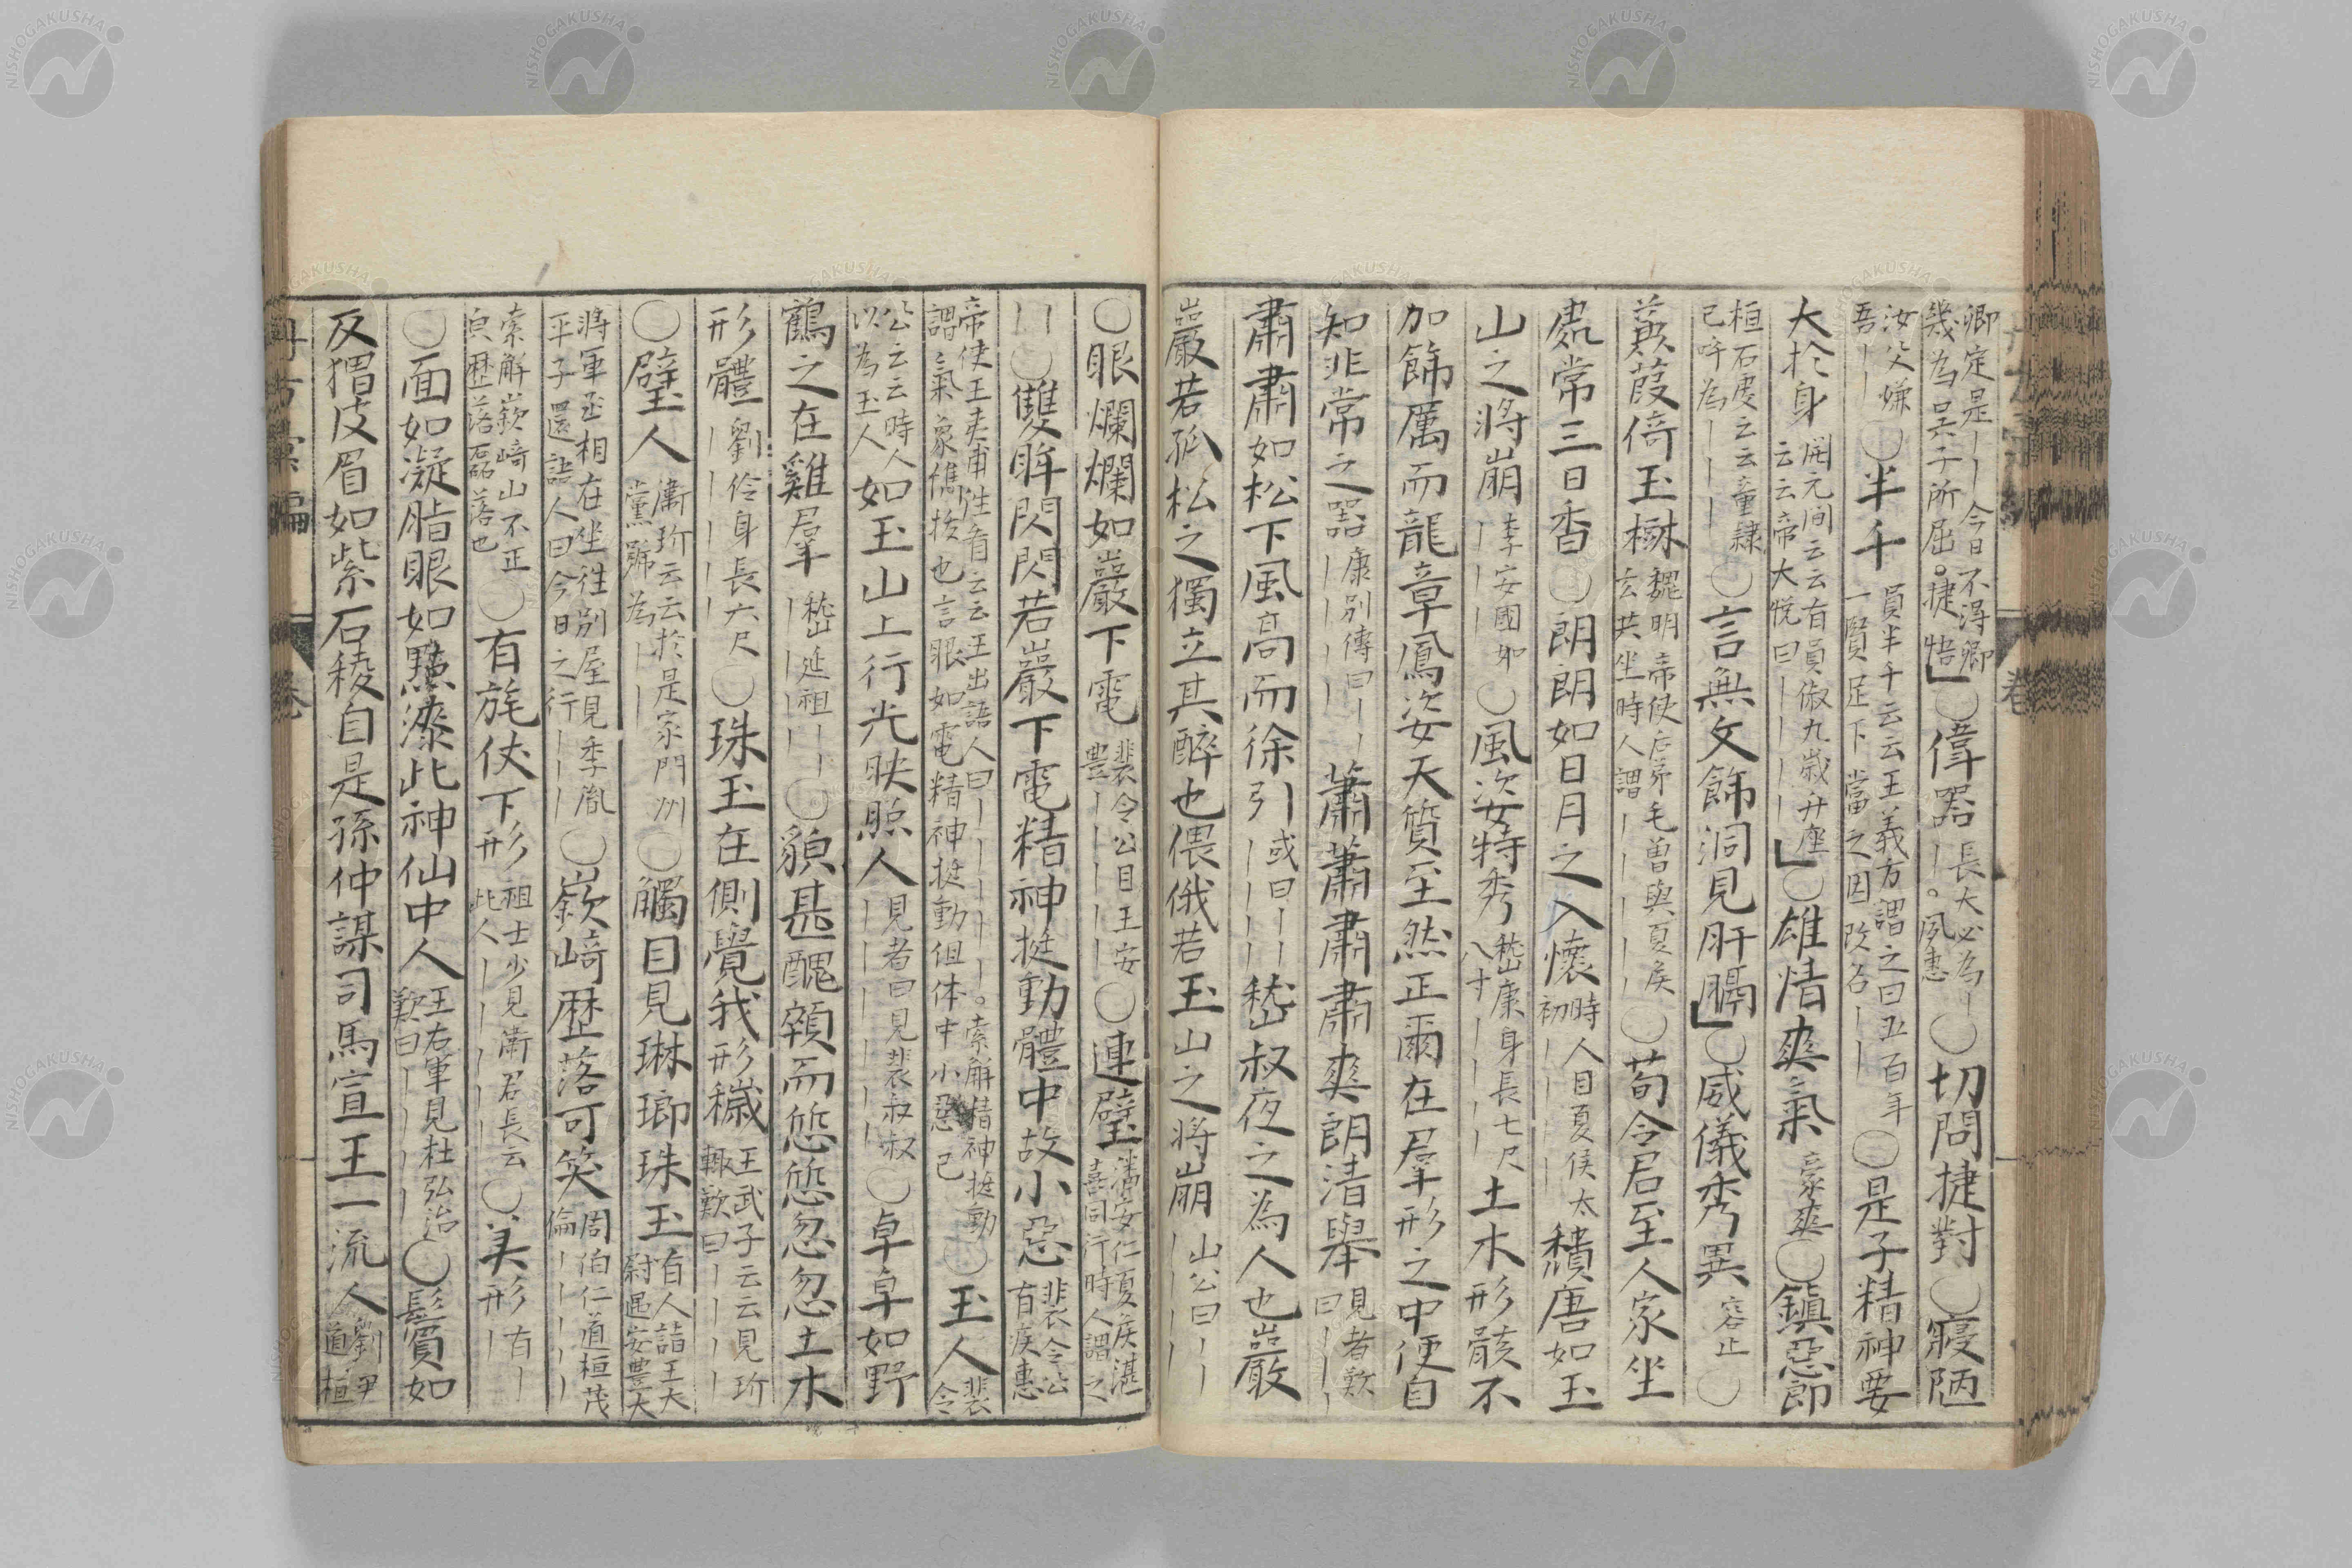 卿定是｜｜今日不得卿幾為吴子所屈。捷悟」〇偉器長大必為｜｜。夙惠〇切問捷對〇寢陋
汝父嫌吾｜｜〇半千員半千云云王義方謂之曰五百年一賢足下當之因改名｜｜〇是子精神要
大於身開元間云云有員俶九歳升座云云帝大悦曰｜｜｜｜｜」〇雄情爽氣豪爽〇鎮惡郎
桓石虔云云童隷已呼為｜｜｜〇言無文飾洞見肝膈」〇威儀秀異容止〇
蒹葭倚玉樹魏明帝使后弟毛曽與夏侯玄共坐時人謂｜｜｜｜｜〇荀令君至人家坐
處常三日香〇朗朗如日月之入懷時人目夏侯太初｜｜｜｜｜頽唐如玉
山之將崩李安國如｜｜｜〇風姿特秀嵆康身長七尺八寸｜｜｜｜土木形骸不
加飾厲而龍章鳳姿天質至然正爾在羣形之中便自
知非常之器康別傳曰｜｜｜｜｜蕭蕭肅肅爽朗清舉見者歎曰｜｜｜
肅肅如松下風高而徐引或曰｜｜｜｜｜｜嵆叔夜之為人也巖
巖若孤松之獨立其醉也偎俄若玉山之將崩山公曰｜｜｜｜｜
〇眼爛爛如巖下電裴令公目王安豊｜｜｜｜｜〇連璧潘安仁夏侯湛喜同行時人謂之
｜｜〇雙眸閃閃若巖下電精神挺動體中故小惡裴令公有疾惠
帝使王夷甫往看云云王出語人曰｜｜｜｜｜。索解精神挺動謂氣象儁抜也言眼如電精神挺動但体中小惡已〇玉人裴令
公云云時人以為玉人如玉山上行光映照人見者曰見裴叔叔｜｜｜｜｜〇卓卓如野
鶴之在雞羣嵆延祖｜｜｜｜｜〇貌甚醜顇而悠悠忽忽土木
形體劉伶身長六尺｜｜｜｜〇珠玉在側覺我形穢王武子云云見玠輒歎曰｜｜｜｜
〇璧人衞玠云云於是家門州黨號為｜｜〇觸目見琳瑯珠玉有人詣王大尉遇安豊大
將軍丞相在坐往別屋見季胤平子還語人曰今日之行｜｜｜｜〇嶔﨑歴落可笑周伯仁道桓茂倫｜｜｜｜｜
索解嶔﨑山不正皃歴落磊落也〇有旄伏下形祖士少見衞君長云此人｜｜｜｜｜〇美形有｜形｜
〇面如凝脂眼如點漆此神仙中人王右軍見杜弘治歎曰｜｜｜｜〇鬢如
反猬皮眉如紫石稜自是孫仲謀司馬宣王一流人劉尹道桓